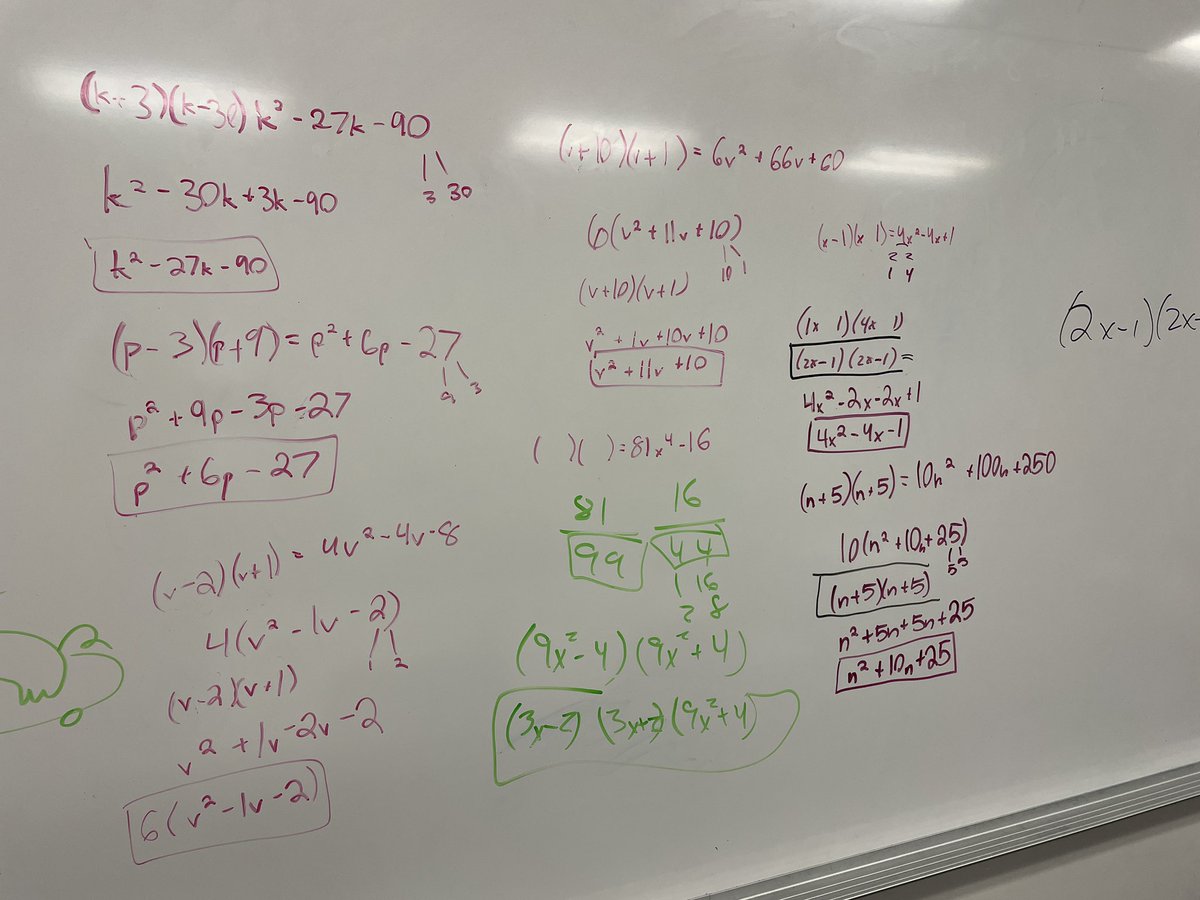 (k+3)(k-30) k² - 27k - 90
3 30
k² - 30k + 3k - 90
k² - 27k - 90
(p - 3)(p + 9) = p² + 6p - 27
9 3
p² + 9p - 3p - 27
p² + 6p - 27
(v - 2)(v + 1) = 4v² - 4v - 8
4(v² - 1v - 2)
1 2
(v - 2)(v + 1)
v² + 1v - 2v - 2
6(v² - 1v - 2)
(v + 10)(v + 1) = 6v² + 66v + 60
6(v² + 11v + 10)
10 1
(v + 10)(v + 1)
v² + 1v + 10v + 10
v² + 11v + 10
( )( ) = 81x⁴ - 16
81 16
99 44
1 16
2 8
(9x² - 4)(9x² + 4)
(3x - 2)(3x + 2)(9x² + 4)
(x - 1)(x 1) = 4x² - 4x + 1
2 2
1 4
(1x 1)(4x 1)
(2x - 1)(2x - 1) =
4x² - 2x - 2x + 1
4x² - 4x - 1
(n + 5)(n + 5) = 10n² + 100n + 250
10(n² + 10n + 25)
5 5
(n + 5)(n + 5)
n² + 5n + 5n + 25
n² + 10n + 25
(2x - 1)(2x -